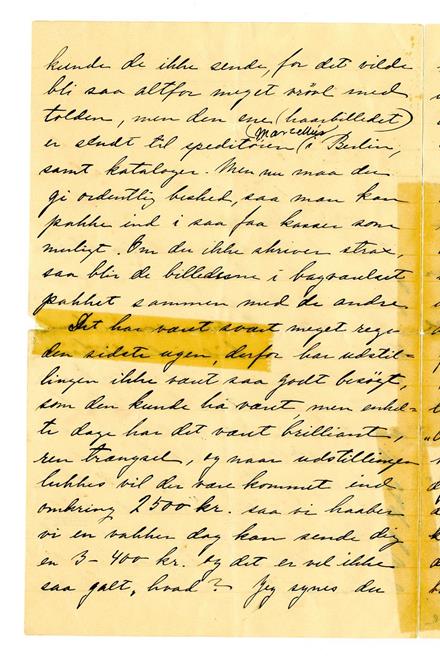 kunde de ikke sende, for det vilde
bli saa altfor meget vrøvl med
tolden, men den ene (haarbilledet)
er sendt til speditøren (Marcellus) i Berlin,
samt kataloger. Men nu maa du
gi ordentlig besked, saa man kan
pakke ind i saa faa kasser som
muligt. Om du ikke skriver strax,
saa blir de billederne i bagvaulset
pakket sammen med de andre.
Det har været svært meget regn
den sidste ugen, derfor har udstil-
lingen ikke været saa godt besøgt,
som den kunde ha været, men enkel-
te dage har det været brilliant,
ren trængsel, og naar udstillingen
lukkes vil der være kommet ind
omkring 2500 kr. saa vi haaber
vi en vakker dag kan sende dig
en 3-400 kr. og det er vel ikke
saa galt, hvad? Jeg synes du